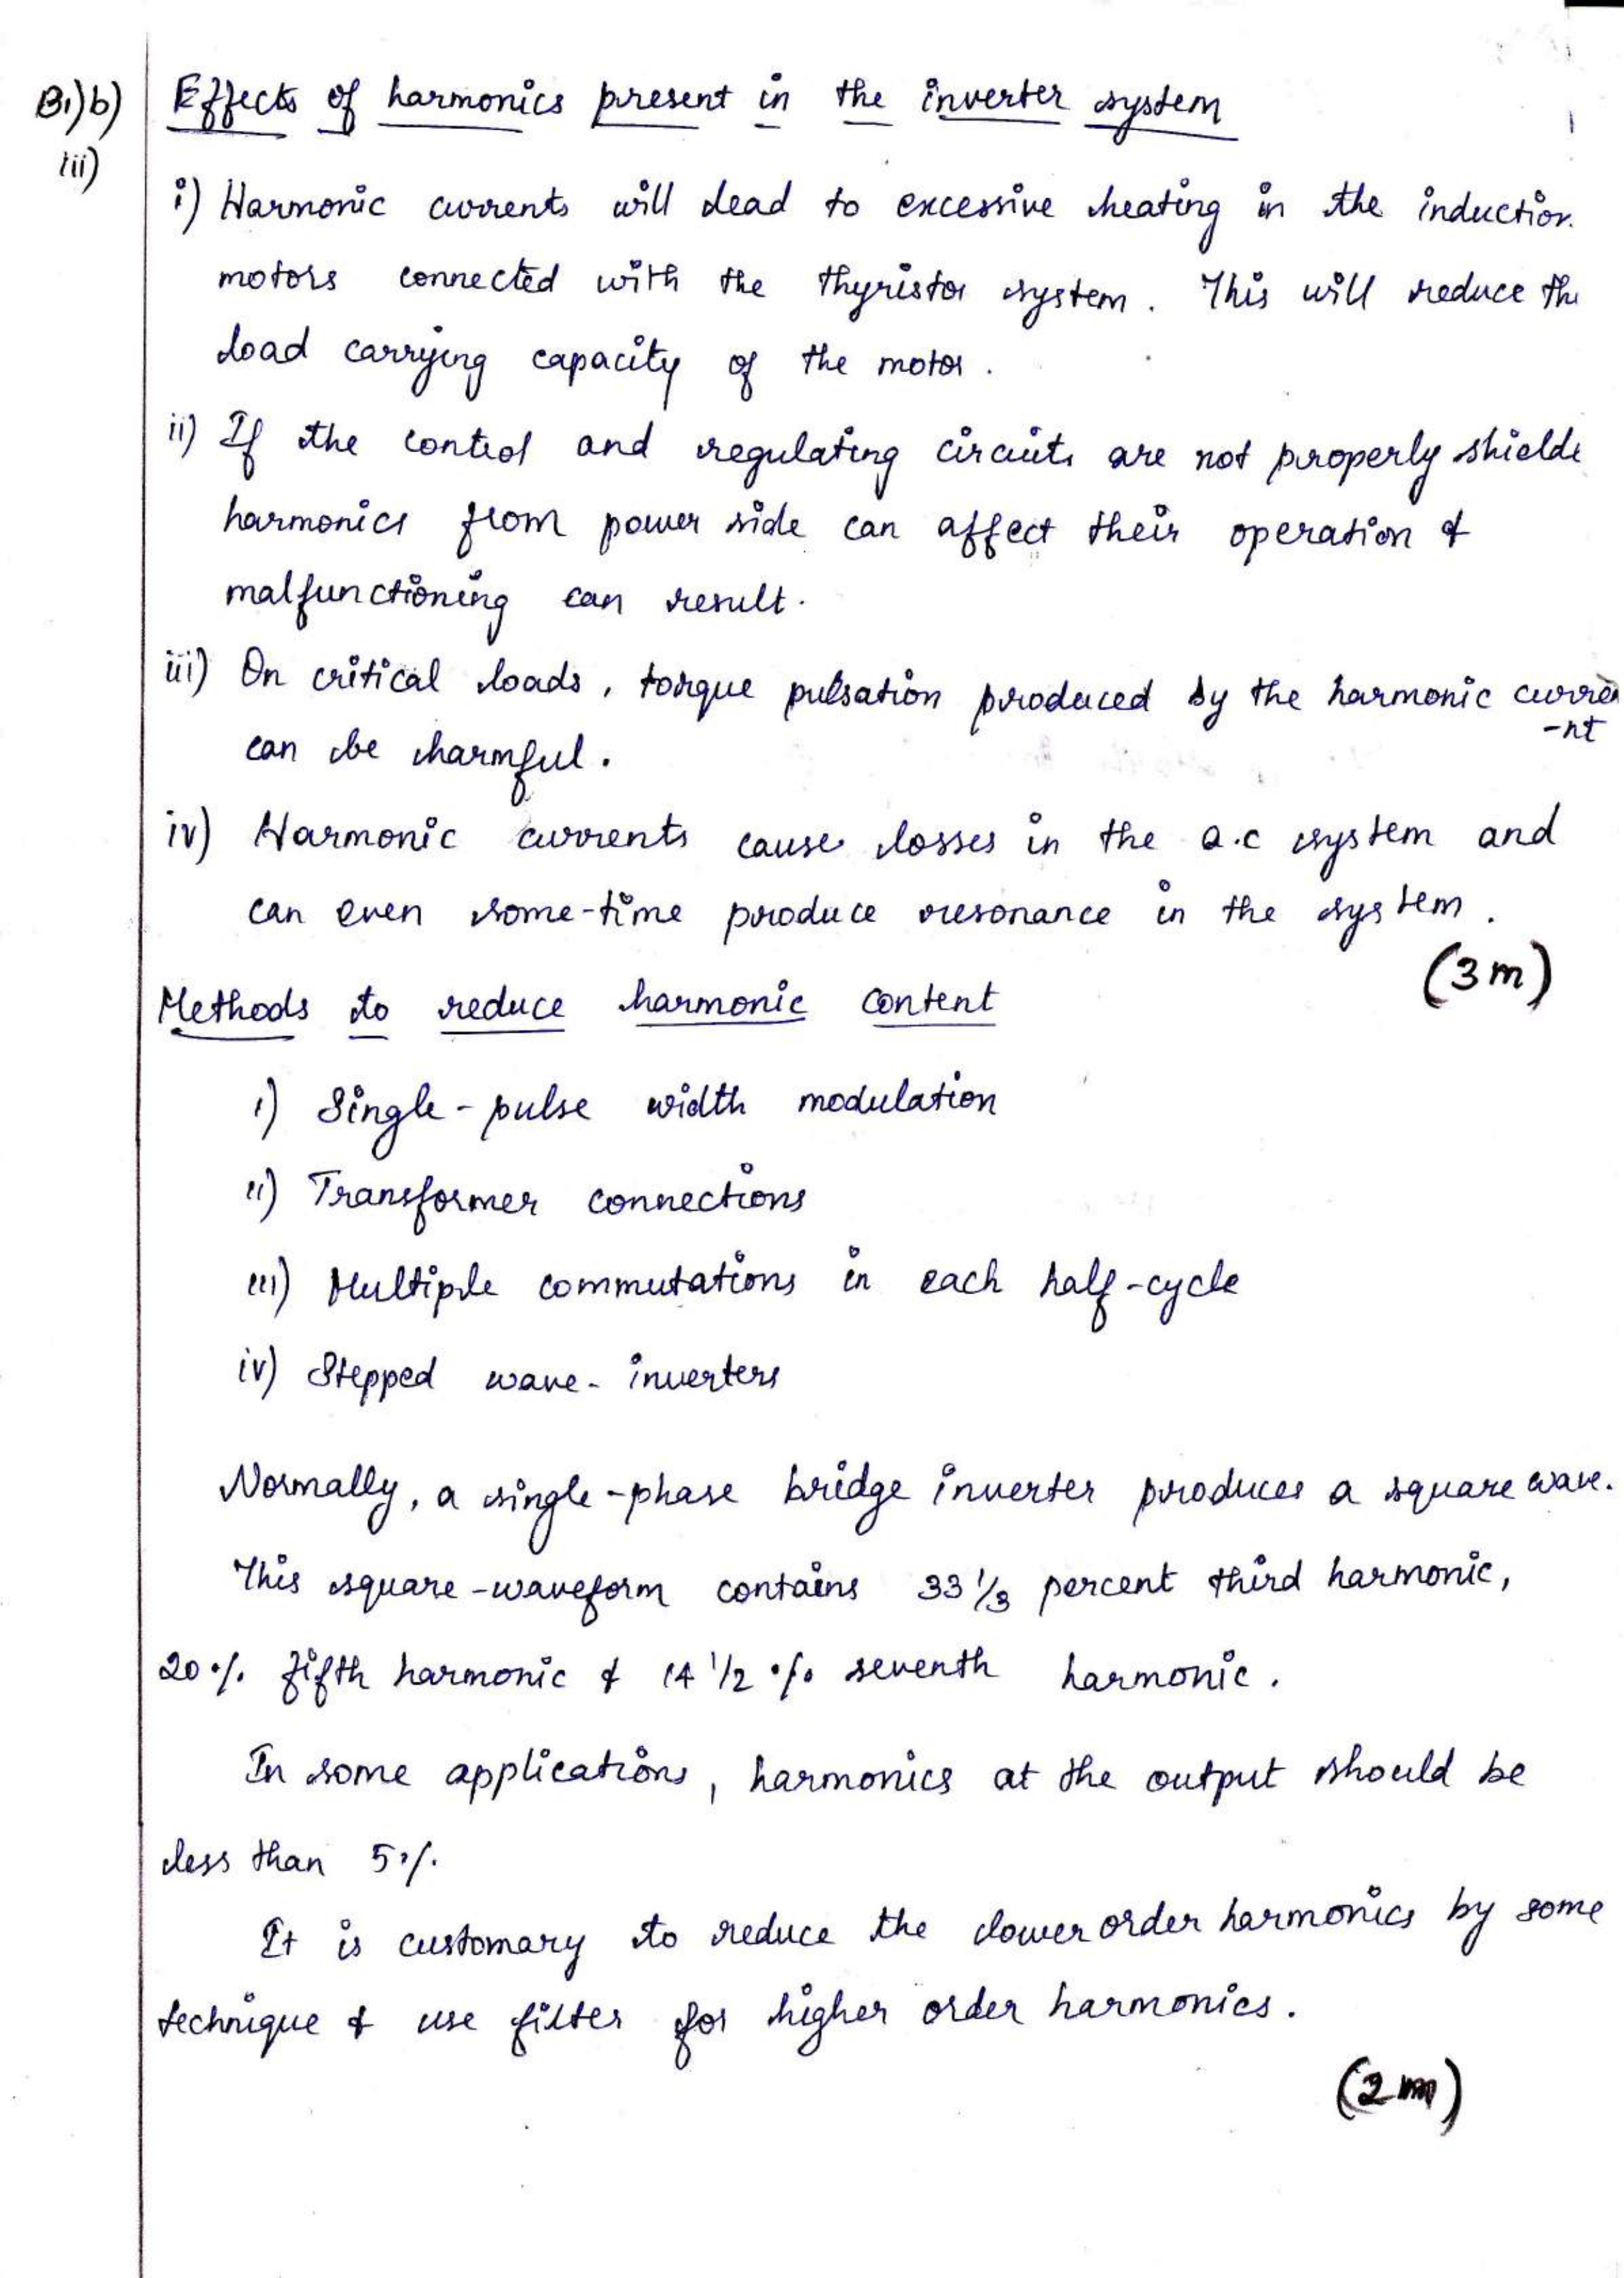 B1)b) Effects of harmonics present in the inverter system
iii)
i) Harmonic currents will lead to excessive heating in the induction
motors connected with the thyristor system. This will reduce the
load carrying capacity of the motor.
ii) If the control and regulating circuits are not properly shielde
harmonics from power side can affect their operation &
malfunctioning can result.
iii) On critical loads, torque pulsation produced by the harmonic curre
-nt
can be harmful.
iv) Harmonic currents cause losses in the a.c system and
can even some-time produce resonance in the system.
(3m)
Methods to reduce harmonic content
i) Single-pulse width modulation
ii) Transformer connections
iii) Multiple commutations in each half-cycle
iv) Stepped wave-inverters
Normally, a single-phase bridge inverter produces a square wave.
This square-waveform contains 33 1/3 percent third harmonic,
20% fifth harmonic & 14 1/2 % seventh harmonic.
In some applications, harmonics at the output should be
less than 5%.
It is customary to reduce the lower order harmonics by some
technique & use filter for higher order harmonics.
(2m)